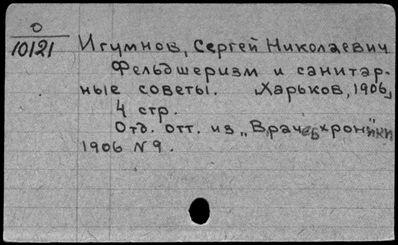 О
10121
Игумнов, Сергей Николаевич
Фельдшеризм и санитар-
ные советы. Харьков, 1906,
4 стр.
Отд. отт. из „Врачеб. хроники
1906 N 9.